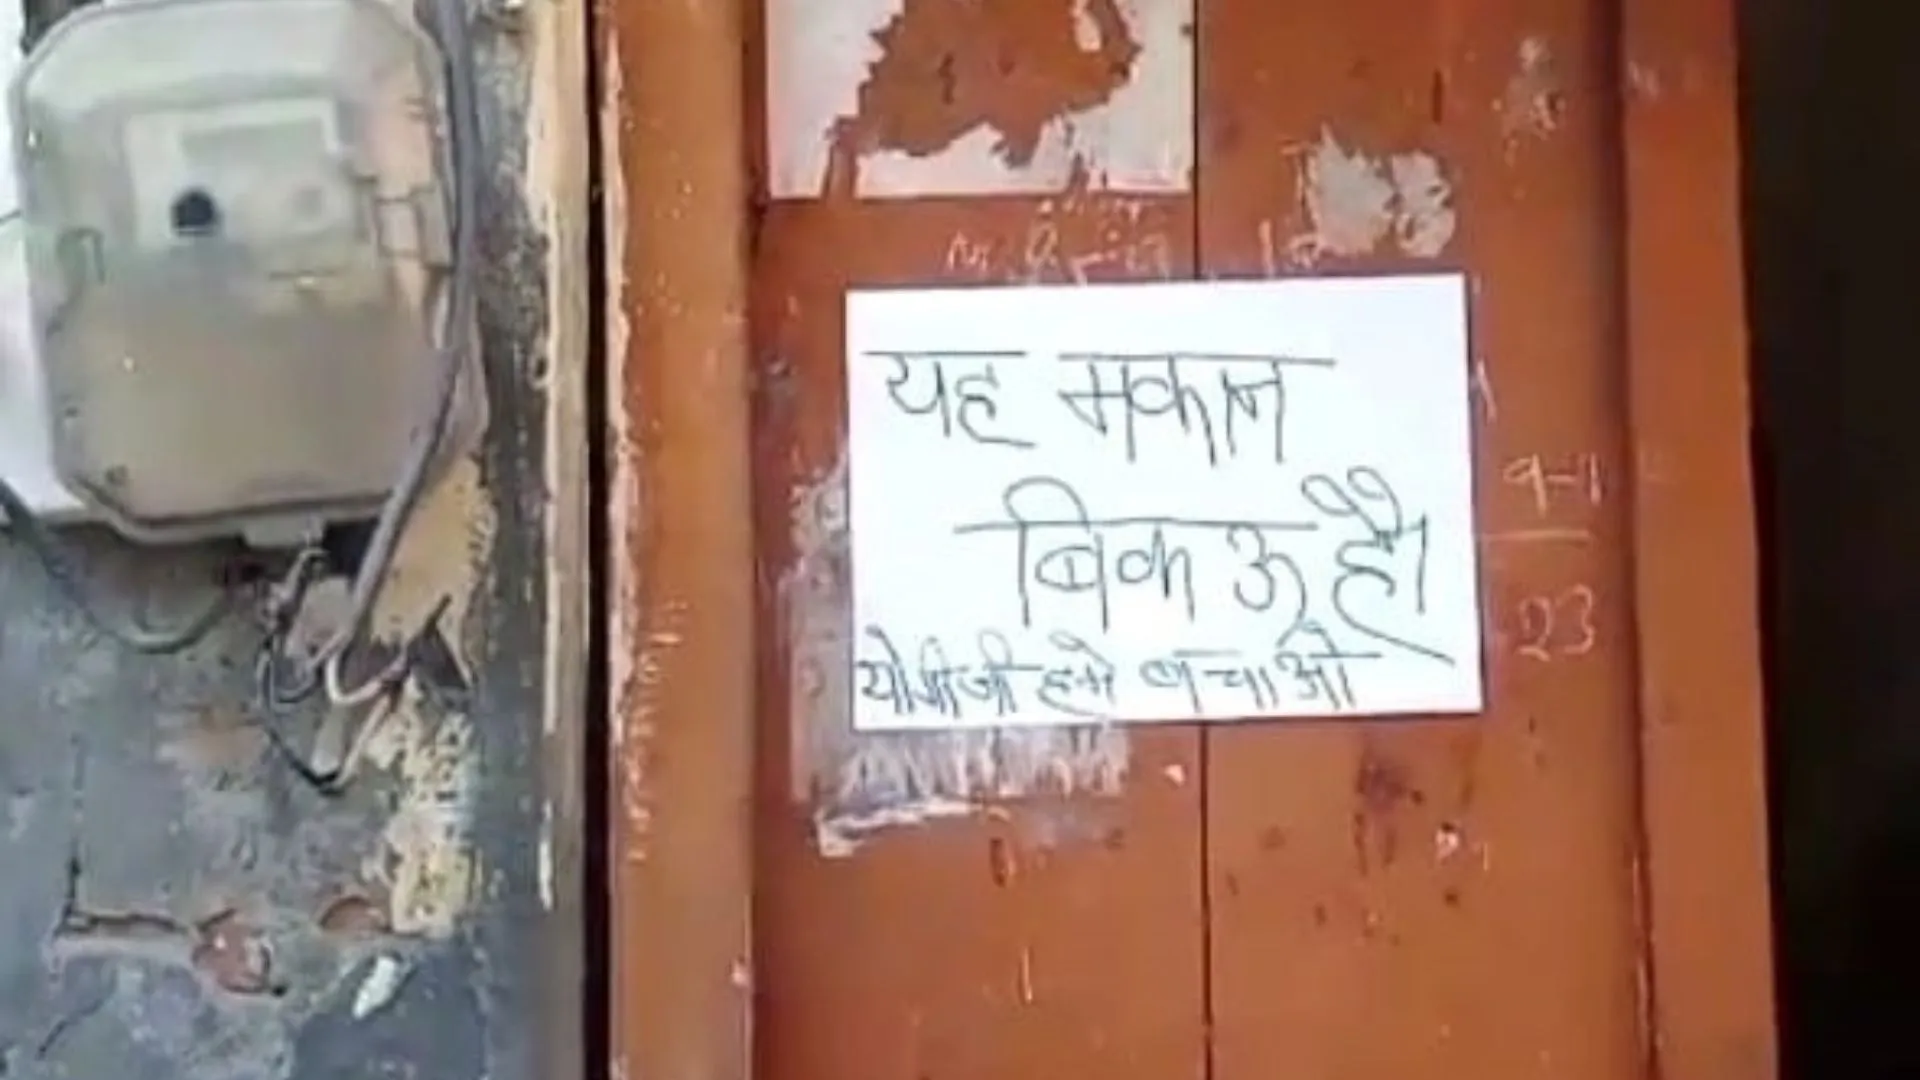 यह मकान
बिक ऊ है।
योगीजी हमे बचाओ
9-1
23